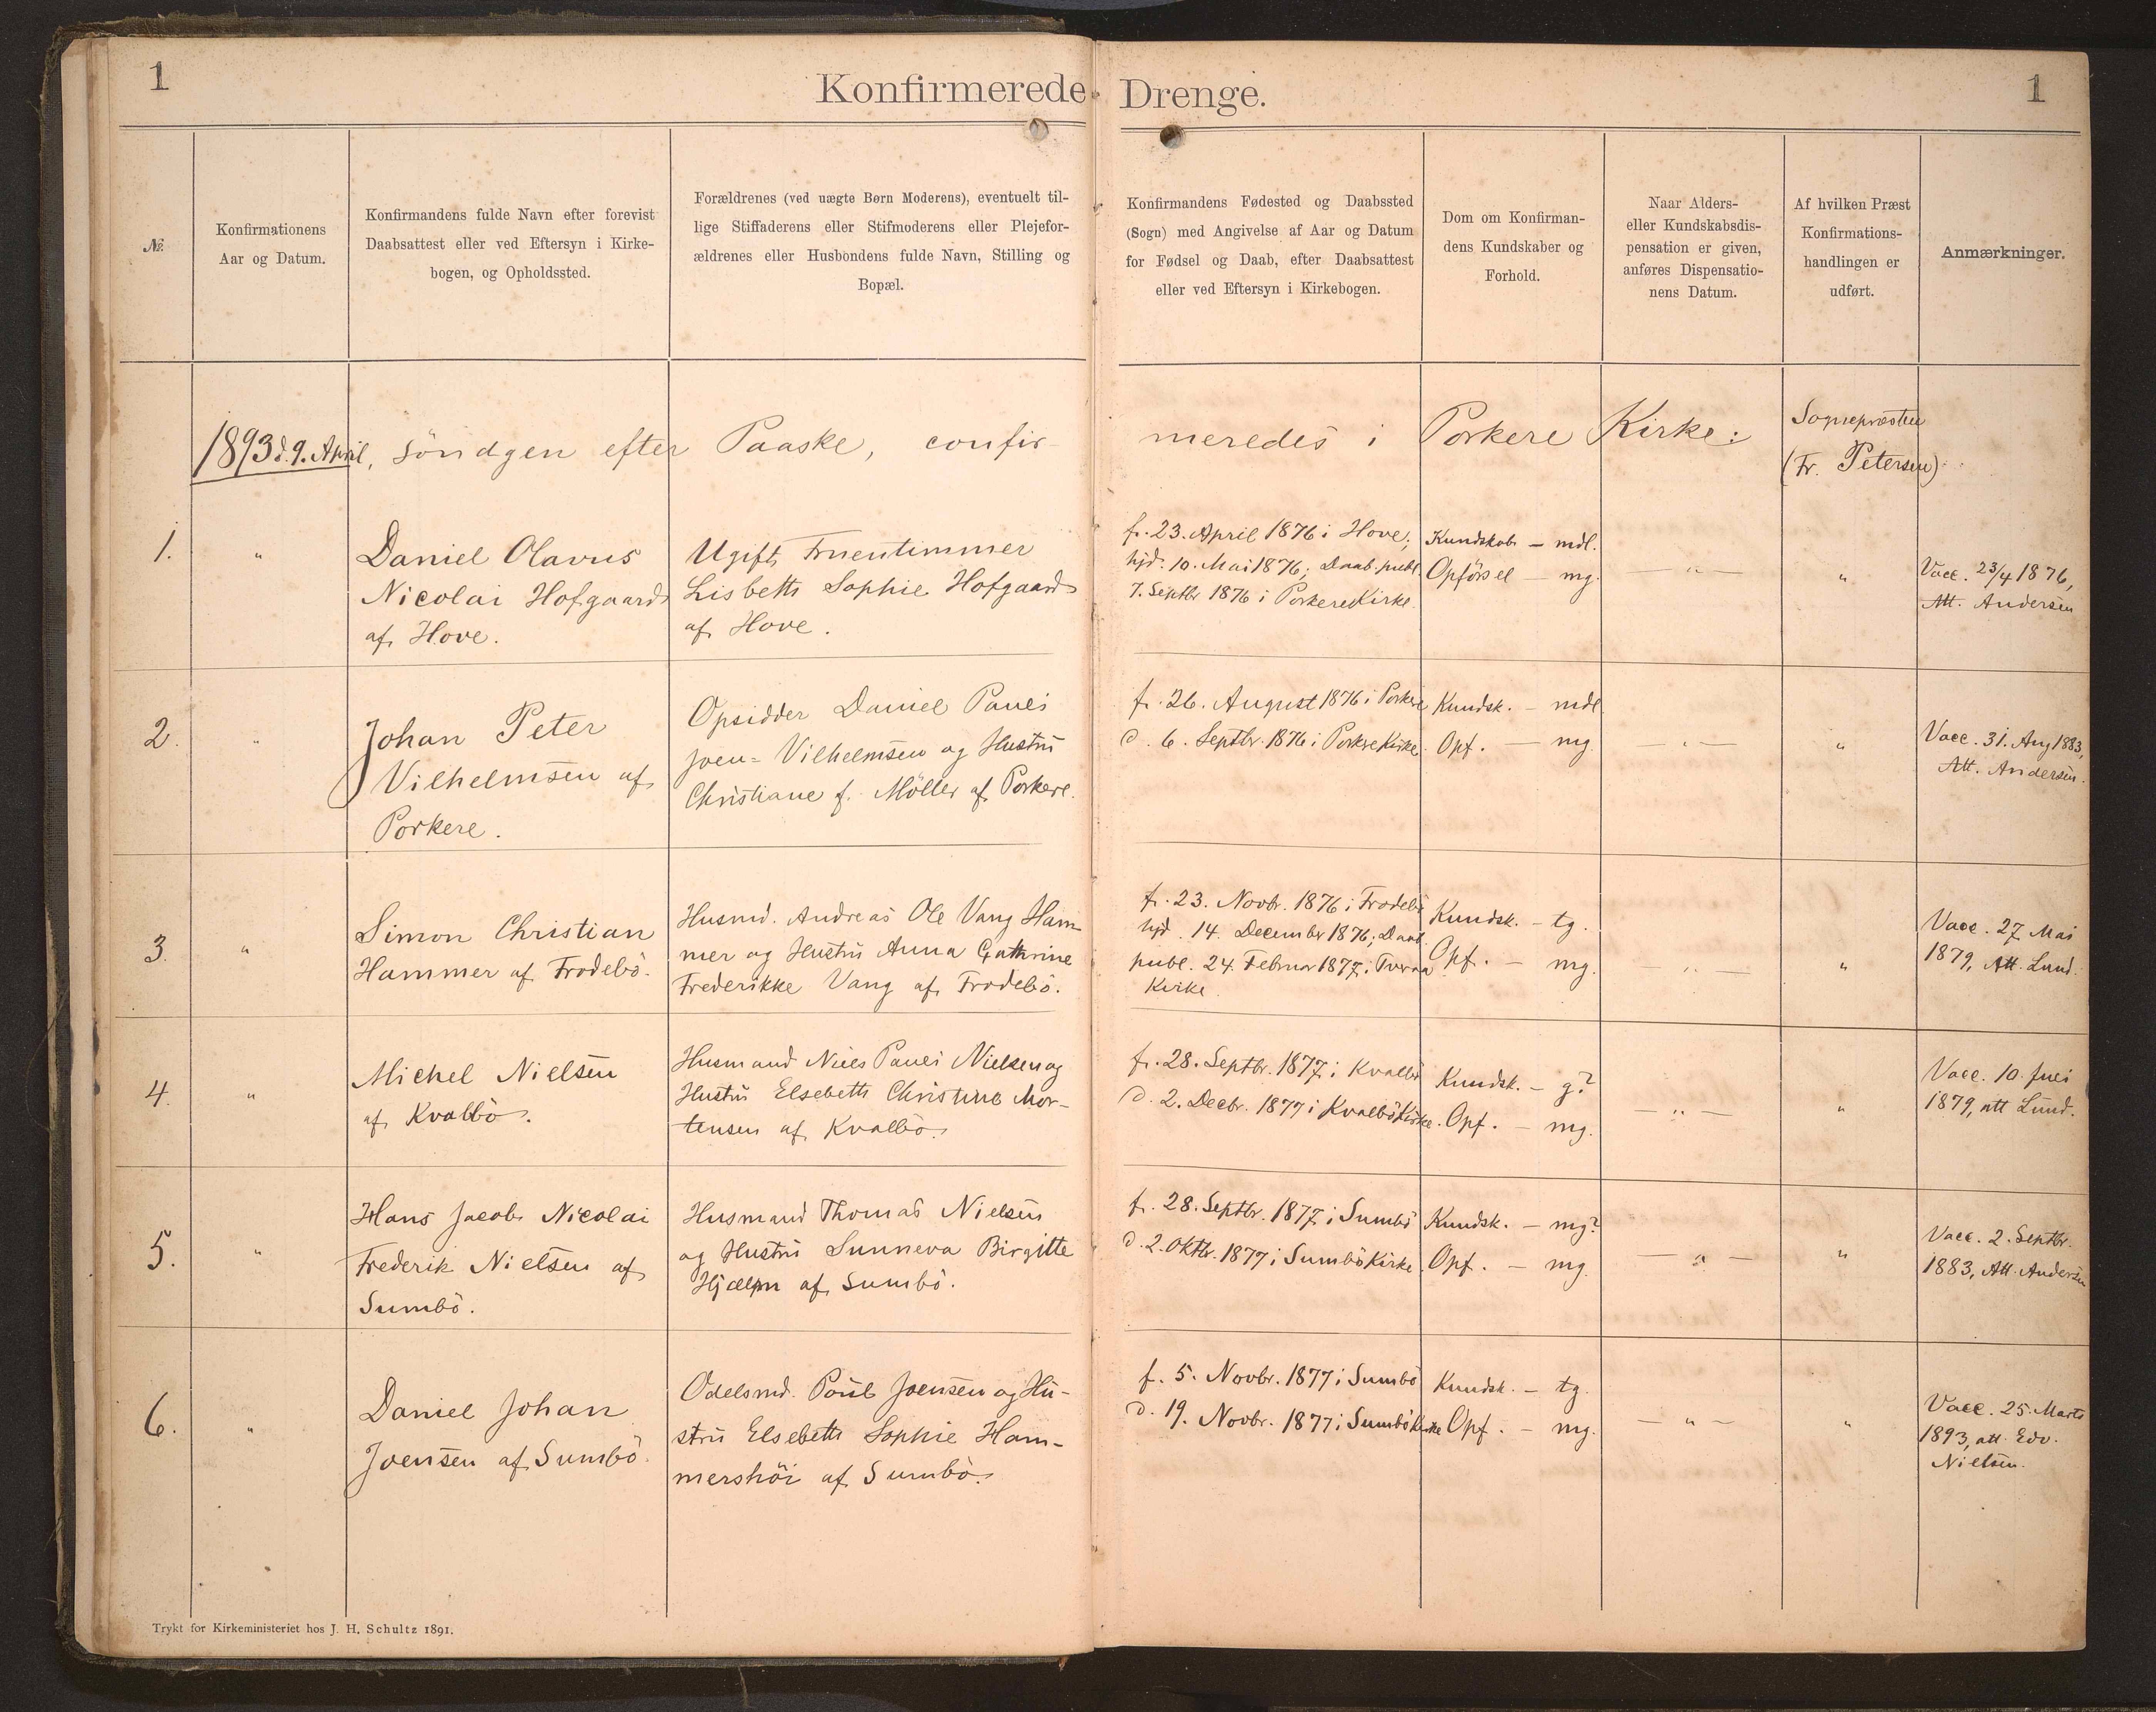 1
Konfirmerede Drenge.
1
№
Konfirmationens
Aar og Datum.
Konfirmandens fulde Navn efter forevist
Daabsattest eller ved Eftersyn i Kirke-
bogen, og Opholdssted.
Forældrenes (ved uægte Børn Moderens), eventuelt til-
lige Stiffaderens eller Stifmoderens eller Plejefor-
ældrenes eller Husbondens fulde Navn, Stilling og
Bopæl.
Konfirmandens Fødested og Daabssted
(Sogn) med Angivelse af Aar og Datum
for Fødsel og Daab, efter Daabsattest
eller ved Eftersyn i Kirkebogen.
Dom om Konfirman-
dens Kundskaber og
Forhold.
Naar Alders-
eller Kundskabsdis-
pensation er given,
anføres Dispensatio-
nens Datum.
Af hvilken Præst
Konfirmations-
handlingen er
udført.
Anmærkninger.
1893 d. 9. April, Söndgen efter Paaske, confir-
meredes i Porkere Kirke:
Sognepræsten
(Fr. Petersen)
1.
"
Daniel Olavus
Nicolai Hofgaard
af Hove.
Ugift Fruentimmer
Lisbeth Sophie Hofgaard
af Hove.
f. 23. April 1876 i Hove;
hjd. 10. Mai 1876; Daab. publ.
7. Septbr 1876 i Porkere Kirke.
Kundskab – mdl.
Opförsel – mg.
— " —
"
Vacc. 23/4 1876,
Att. Andersen
2.
"
Johan Peter
Vilhelmsen af
Porkere.
Opsidder Daniel Pauli
Joen= Vilhelmsen og Hustru
Christiane f. Möller af Porkere.
f. 26. August 1876 i Porkere
d. 6. Septbr. 1876 i Porkere Kirke.
Kundsk. – mdl.
Opf. – mg.
— " —
"
Vacc. 31. Aug 1883,
Att. Andersen.
3.
"
Simon Christian
Hammer af Frodebö.
Husmd. Andreas Ole Vang Ham-
mer og Hustru Anna Cathrine
Frederikke Vang af Frodebö.
f. 23. Novbr. 1876 i Frodebö
hjd. 14. December 1876; Daab.
publ. 24. Februar 1877 i Tveraa
Kirke
Kundsk. – tg.
Opf. – mg.
— " —
"
Vacc. 27. Mai
1879, Att. Lund.
4.
"
Michel Nielsen
af Kvalbö.
Husmand Niels Pauli Nielsen og
Hustru Elsebeth Christine Mor-
tensen af Kvalbö.
f. 28. Septbr. 1877 i Kvalbö
d. 2. Decbr. 1877 i Kvalbö Kirke.
Kundsk. – g?
Opf. – mg.
— " —
"
Vacc. 10. Juli
1879, att Lund.
5.
"
Hans Jacob Nicolai
Frederik Nielsen af
Sumbö.
Husmand Thomas Nielsen
og Hustru Sunneva Birgitte
Hjelm af Sumbö.
f. 28. Septbr. 1877 i Sumbö
d. 2. Oktbr. 1877 i Sumbö Kirke.
Kundsk. – mg?
Opf. – mg.
— " —
"
Vacc. 2. Septbr.
1883, Att. Andersen
6.
"
Daniel Johan
Joensen af Sumbö.
Odelsmd. Poul Joensen og Hu-
stru Elsebeth Sophie Ham-
mershöi af Sumbö.
f. 5. Novbr. 1877 i Sumbö
d. 19. Novbr. 1877 i Sumbö Kirke
Kundsk. – tg.
Opf. – mg.
— " —
"
Vacc. 25. Marts
1893, att. Edv.
Nielsen.
Trykt for Kirkeministeriet hos J. H. Schultz 1891.